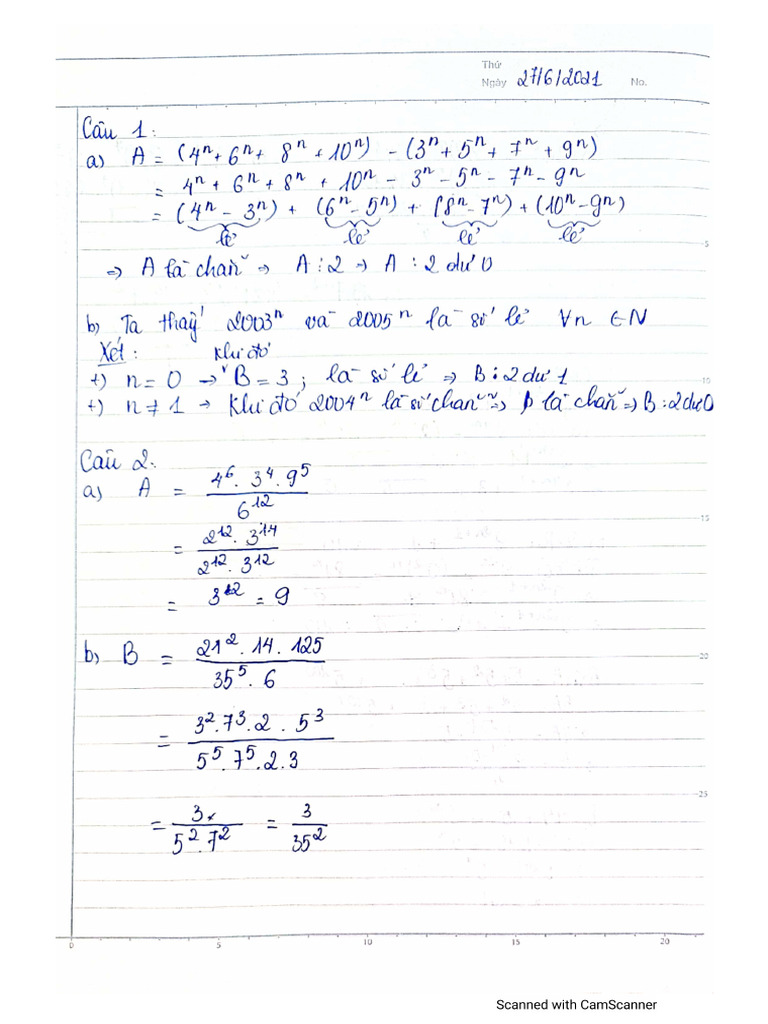 Thứ
Ngày 27/6/2021 No.
Câu 1:
a) A = (4ⁿ + 6ⁿ + 8ⁿ + 10ⁿ) - (3ⁿ + 5ⁿ + 7ⁿ + 9ⁿ)
= 4ⁿ + 6ⁿ + 8ⁿ + 10ⁿ - 3ⁿ - 5ⁿ - 7ⁿ - 9ⁿ
= (4ⁿ - 3ⁿ) + (6ⁿ - 5ⁿ) + (8ⁿ - 7ⁿ) + (10ⁿ - 9ⁿ)
lẻ lẻ lẻ lẻ
⇒ A là chẵn ⇒ A : 2 ⇒ A : 2 dư 0
5
b) Ta thấy 2003ⁿ và 2005ⁿ là số lẻ ∀n ∈ N
Xét: khi đó
+) n = 0 → B = 3 ; là số lẻ ⇒ B : 2 dư 1
10
+) n ≠ 1 → Khi đó 2004ⁿ là số chẵn ⇒ B là chẵn ⇒ B : 2 dư 0
Câu 2:
a) A = 4⁶ . 3⁴ . 9⁵ / 6¹²
15
= 2¹² . 3¹⁴ / 2¹² . 3¹²
= 3² = 9
b) B = 21² . 14 . 125 / 35⁵ . 6
20
= 3² . 7³ . 2 . 5³ / 5⁵ . 7⁵ . 2 . 3
25
= 3 / 5² . 7² = 3 / 35²
0 5 10 15 20
Scanned with CamScanner